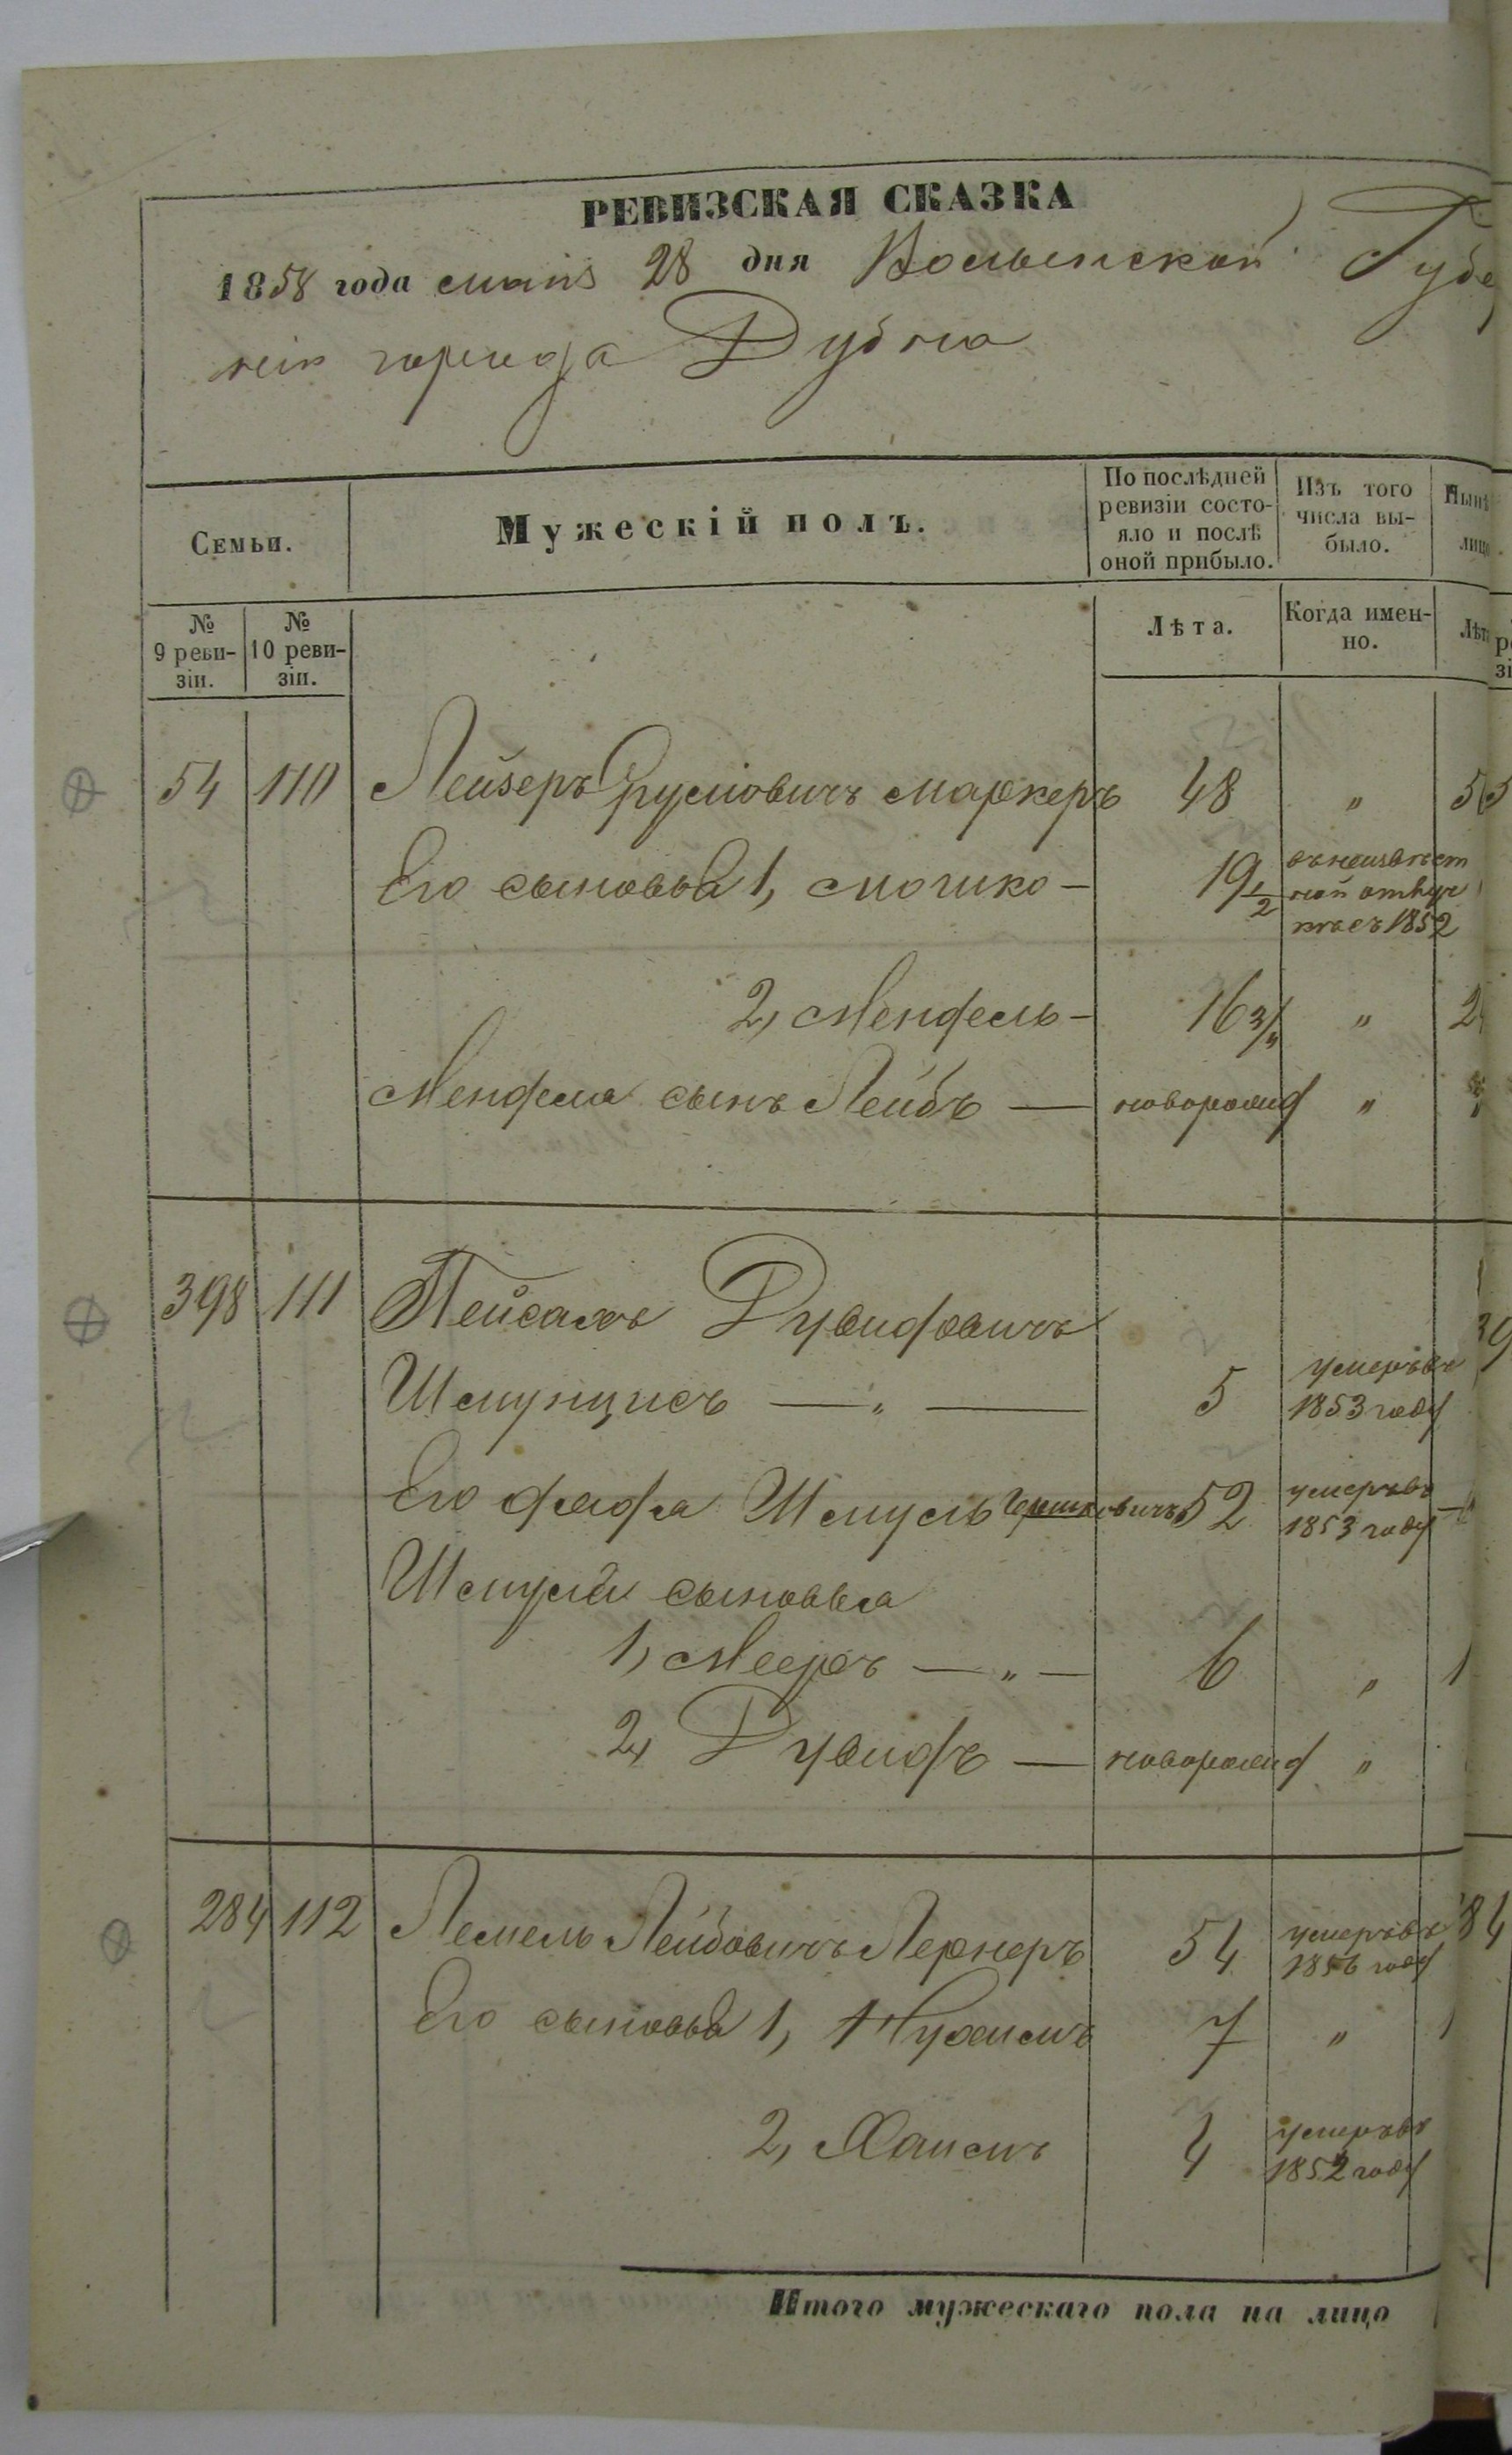 РЕВИЗСКАЯ СКАЗКА
1858 года маія 28 дня Волынской Губе
ніи города Дубна
Семьи.
Мужескій полъ.
По послѣдней ревизіи состо-
яло и послѣ оной прибыло.
Изъ того числа вы-
было.
№ 9 реви-
зіи.
№ 10 реви-
зіи.
Лѣта.
Когда имен-
но.
54 110 Лейзеръ Сруліовичъ Маркеръ 48 "
Его сыновья 1, Мошко - 19 1/2 въ неизвѣст
ной отлуч
кѣ съ 1852
2, Мендель - 16 3/4 "
Менделя сынъ Лейбъ — новорожд "
398 111 Пейсахъ Дувидовичъ
Шмунцисъ — " — 5 умеръ въ
1853 году
Его дядя Шмуль Гершковичъ 52 умеръ въ
1853 году
Шмуля сыновья
1, Мееръ — " — 6 "
2, Дувидъ — новорожд "
284 112 Лемель Лейбовичъ Лернеръ 54 умеръ въ
1856 году
Его сыновья 1, Нухимъ 7 "
2, Хаимъ 4 умеръ въ
1852 году
Итого мужескаго пола на лицо